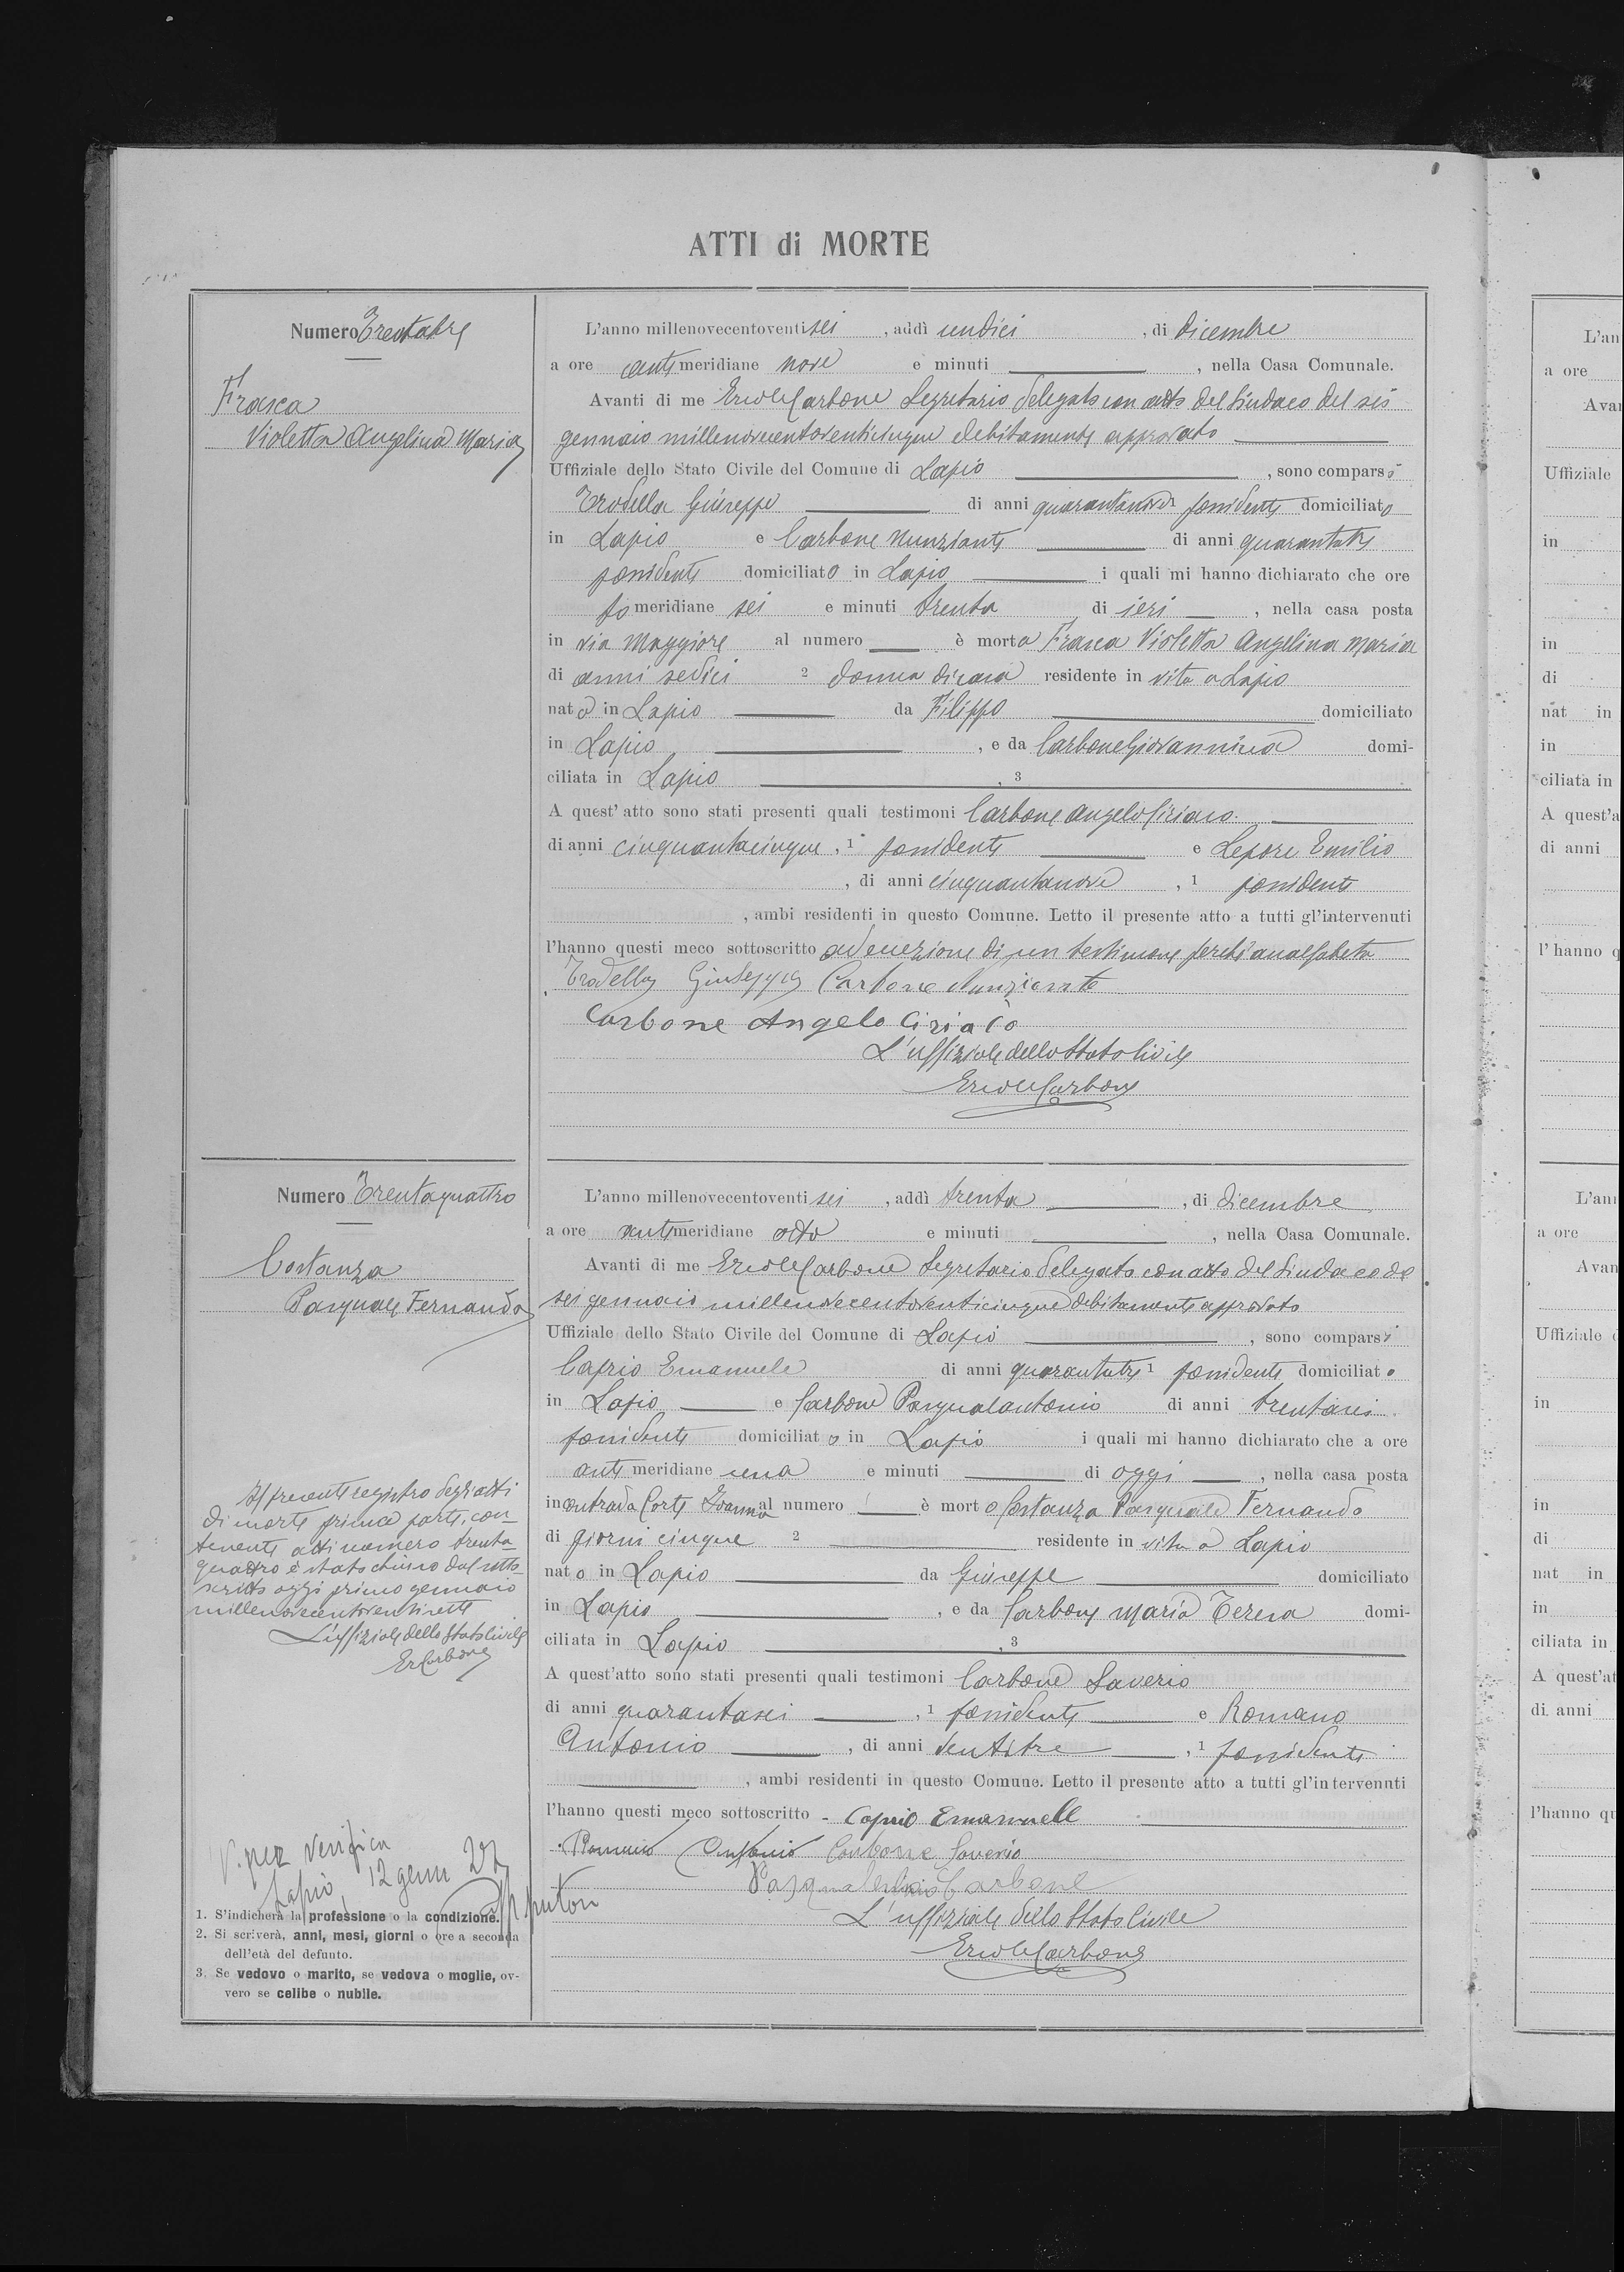 ATTI di MORTE
Numero Trentatre
Frasca
Violetta Angelina Maria
L'anno millenovecentoventisei, addì undici, di dicembre
a ore antimeridiane nove e minuti, nella Casa Comunale.
Avanti di me Ercole Carbone Segretario delegato con atto del Sindaco del sei
gennaio millenovecentoventicinque debitamente approvato
Uffiziale dello Stato Civile del Comune di Lapio, sono comparsi
Trodella Giuseppe di anni quarantanove possidente domiciliato
in Lapio e Carbone Nunziante di anni quarantatre
possidente domiciliato in Lapio i quali mi hanno dichiarato che ore
pomeridiane sei e minuti trenta di ieri, nella casa posta
in via Maggiore al numero è morta Frasca Violetta Angelina Maria
di anni sedici 2 donna di casa residente in vita a Lapio
nata in Lapio da Filippo domiciliato
in Lapio, e da Carbone Giovannina domi-
ciliata in Lapio, 3
A quest'atto sono stati presenti quali testimoni Carbone Angelo Ciriaco
di anni cinquantacinque, 1 possidente e Lepore Emilio
, di anni cinquantanove, 1 possidente
, ambi residenti in questo Comune. Letto il presente atto a tutti gl'intervenuti
l'hanno questi meco sottoscritto ad eccezione di un testimone perché analfabeta
Trodella Giuseppe Carbone Nunziante
Carbone Angelo Ciriaco
L'uffiziale dello Stato Civile
Ercole Carbone
Numero Trentaquattro
Costanza
Pasquale Fernando
L'anno millenovecentoventisei, addì trenta, di dicembre
a ore antimeridiane otto e minuti, nella Casa Comunale.
Avanti di me Ercole Carbone Segretario delegato con atto del Sindaco del
sei gennaio millenovecentoventicinque debitamente approvato
Uffiziale dello Stato Civile del Comune di Lapio, sono comparsi
Caprio Emanuele di anni quarantatre 1 possidente domiciliato
in Lapio e Carbone Pasqualantonio di anni trentasei
possidente domiciliato in Lapio i quali mi hanno dichiarato che a ore
antimeridiane una e minuti di oggi, nella casa posta
in contrada Corte Ioanna al numero è morto Costanza Pasquale Fernando
di giorni cinque 2 residente in vita a Lapio
nato in Lapio da Giuseppe domiciliato
in Lapio, e da Carbone Maria Teresa domi-
ciliata in Lapio, 3
A quest'atto sono stati presenti quali testimoni Carbone Saverio
di anni quarantasei, 1 possidente e Romano
Antonio, di anni ventitre, 1 possidente
, ambi residenti in questo Comune. Letto il presente atto a tutti gl'intervenuti
l'hanno questi meco sottoscritto - Caprio Emanuele
Romano Antonio Carbone Saverio
Pasqualantonio Carbone
L'uffiziale dello Stato Civile
Ercole Carbone
Il presente registro degli atti
di morte prima parte, con-
tenente atti numero trenta-
quattro è stato chiuso dal sotto-
scritto oggi primo gennaio
millenovecentoventisette
L'uffiziale dello Stato Civile
Er Carbone
V. per verifica
Lapio, 12 genn 27
1. S'indicherà la professione o la condizione.
2. Si scriverà, anni, mesi, giorni o ore a seconda
dell'età del defunto.
3. Se vedovo o marito, se vedova o moglie, ov-
vero se celibe o nubile.
L'an
a ore
Avan
Uffiziale
in
in
di
nat in
in
ciliata in
A quest'a
di anni
l'hanno q
L'an
a ore
Avan
Uffiziale
in
in
di
nat in
in
ciliata in
A quest'at
di anni
l'hanno qu